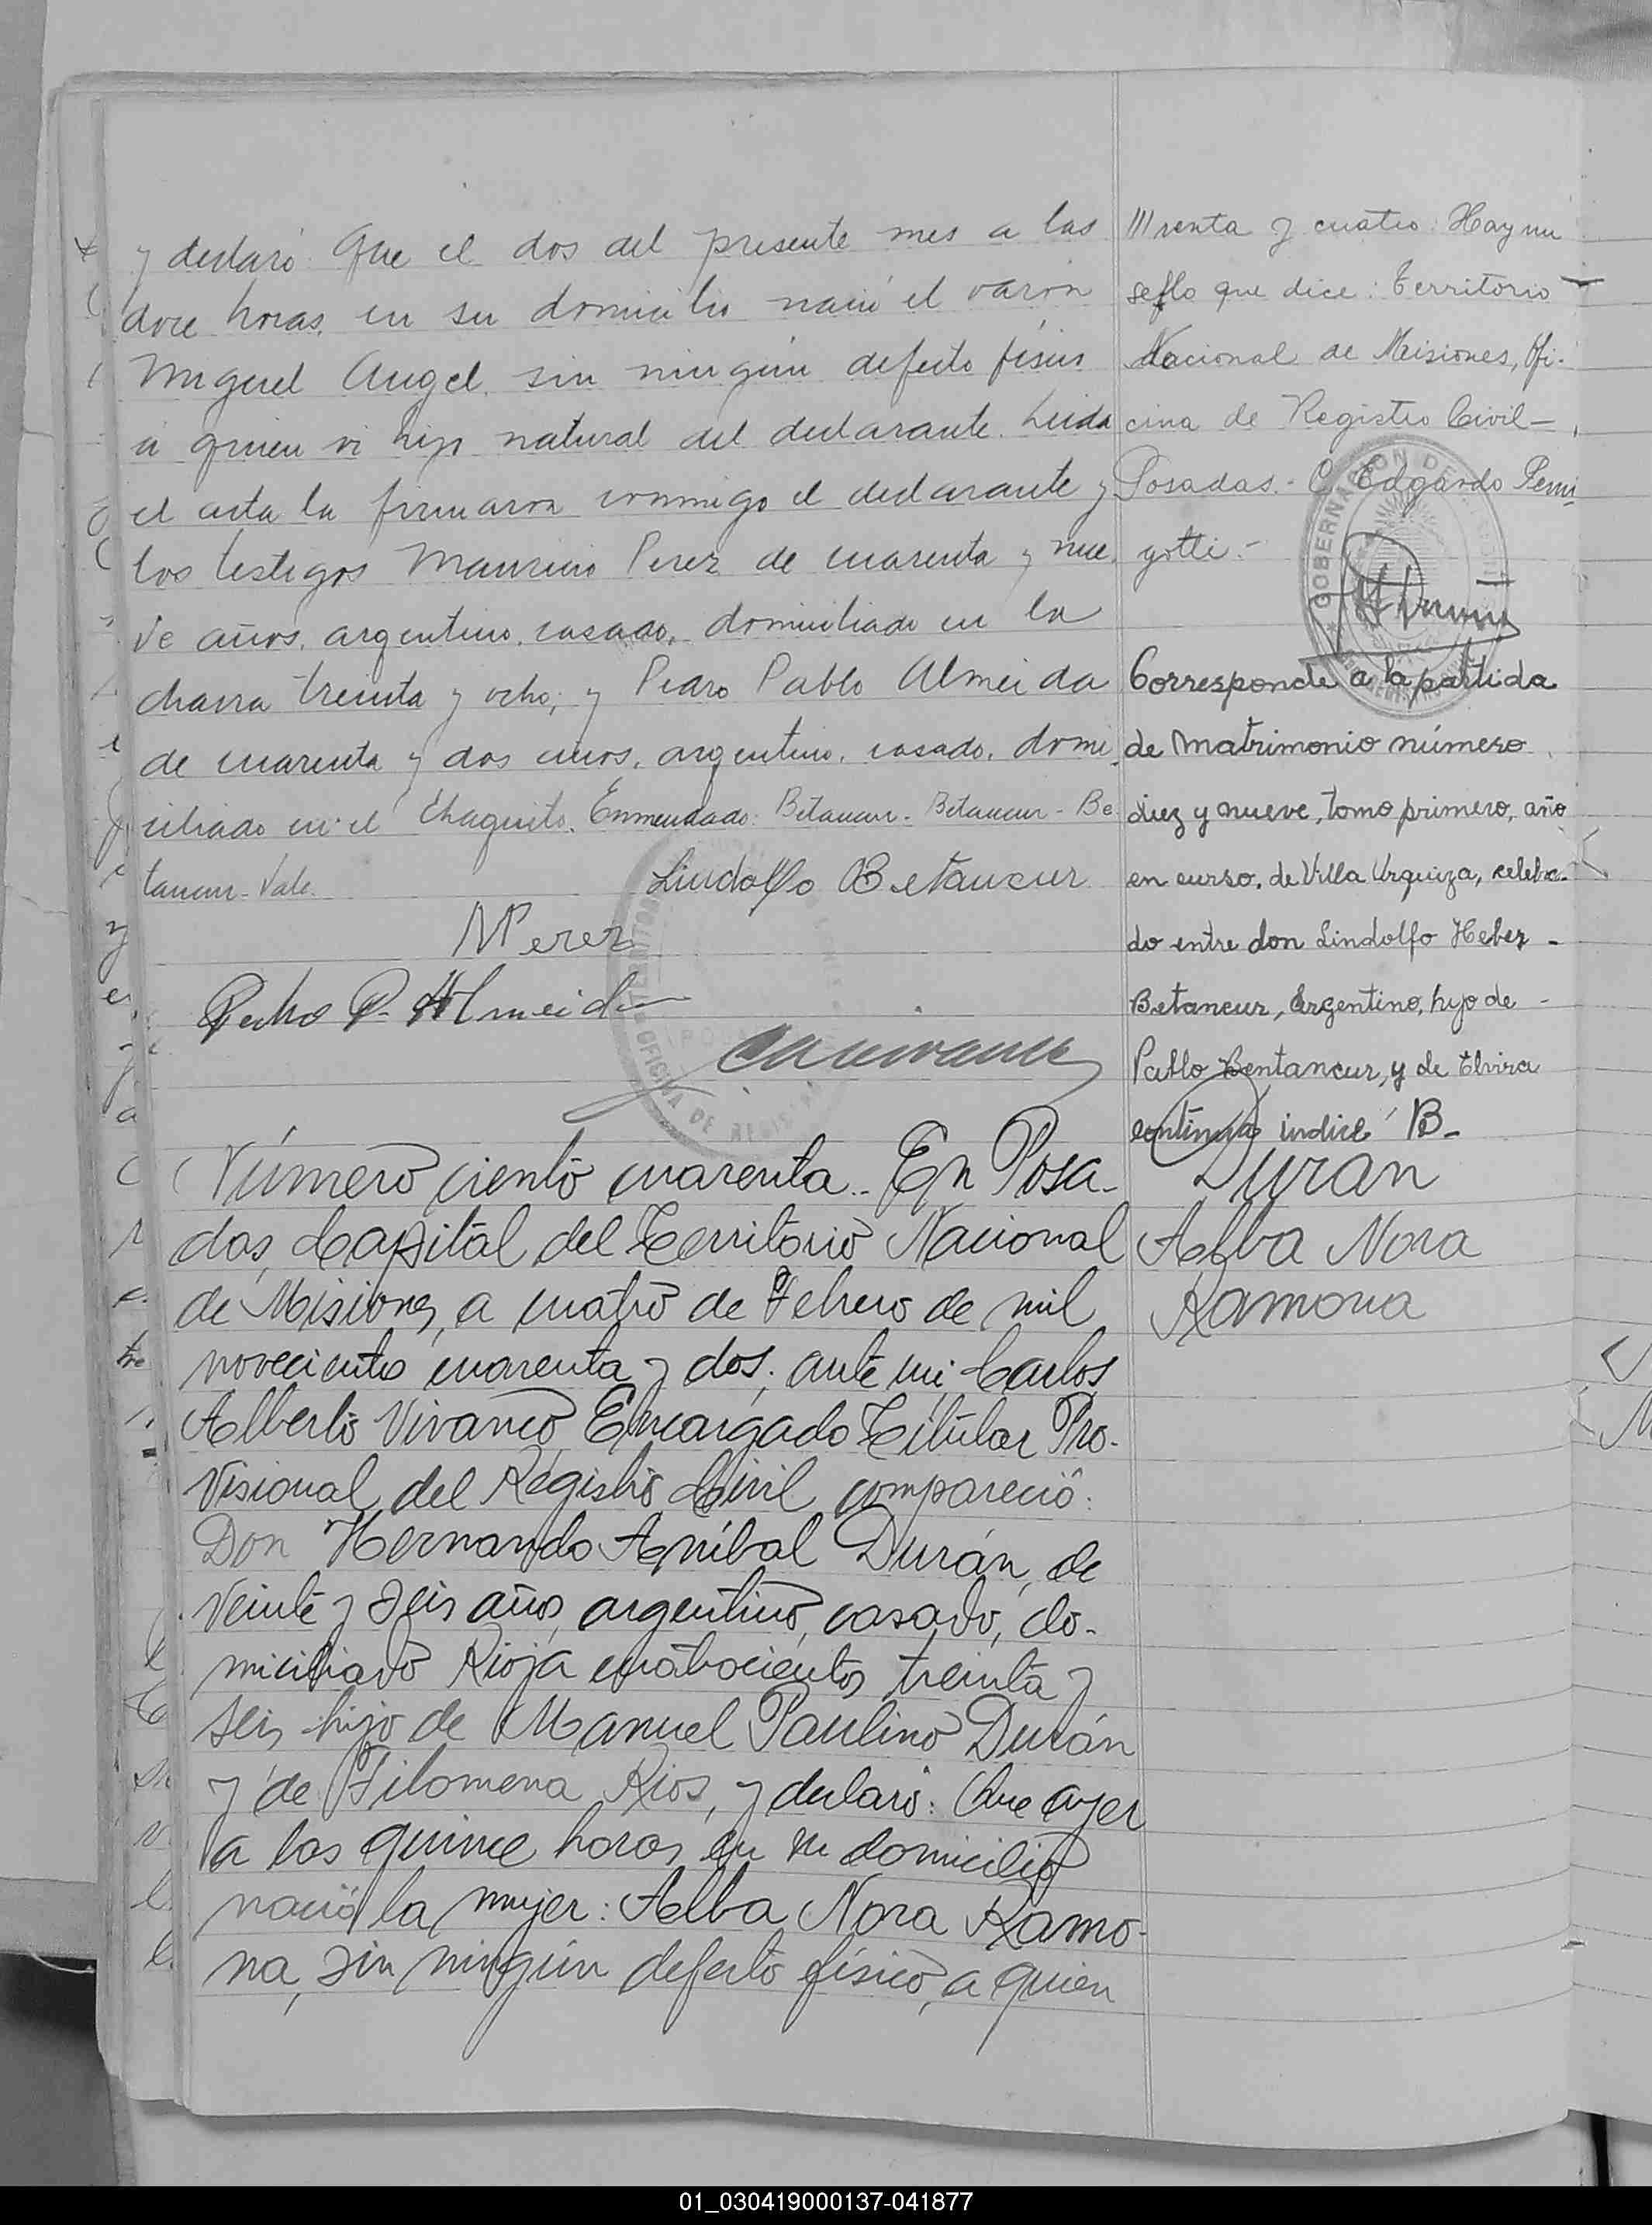 y declaró: Que el dos del presente mes a las
doce horas, en su domicilio nació el varón
Miguel Angel, sin ningún defecto físico
a quien vi hijo natural del declarante. Leida
el acta la firmaron conmigo el declarante y
los testigos Mauricio Perez de cuarenta y nue-
ve años, argentino, casado, domiciliado en la
chacra treinta y ocho; y Pedro Pablo Almeida
de cuarenta y dos años, argentino, casado, domi-
ciliado en el Chaquito. Enmendado: Betancur - Betancur - Be
tancur - Vale.
Lindolfo Betancur
MPerez
Pedro P. Almeida
CAVivanco
Número ciento cuarenta.. En Posa-
das, Capital del Territorio Nacional
de Misiones, a cuatro de Febrero de mil
novecientos cuarenta y dos; ante mi: Carlos
Alberto Vivanco, Encargado Titular Pro-
visional del Registro Civil, compareció:
Don Hernando Aníbal Durán, de
veinte y seis años, argentino, casado, do-
miciliado Rioja cuatrocientos treinta y
seis, hijo de Manuel Paulino Durán
y de Filomena Rios, y declaró: Que ayer
a las quince horas, en su domicilio
nació la mujer: Alba Nora Ramo-
na, sin ningún defecto físico, a quien
///renta y cuatro: Hay un
sello que dice: Territorio
Nacional de Misiones, Ofi-
cina de Registro Civil-
Posadas.- C. Edgardo Pemi
gotti.-
GOBERNACION DE
Corresponde a la partida
de matrimonio número
diez y nueve, tomo primero, año
en curso, de Villa Urquiza, celebra-
do entre don Lindolfo Heber -
Betancur, Argentino, hijo de -
Pablo Bentancur, y de Elvira
continúa indice B-
Duran
Alba Nora
Ramona
OFICINA DE REGISTRO
01_030419000137-041877